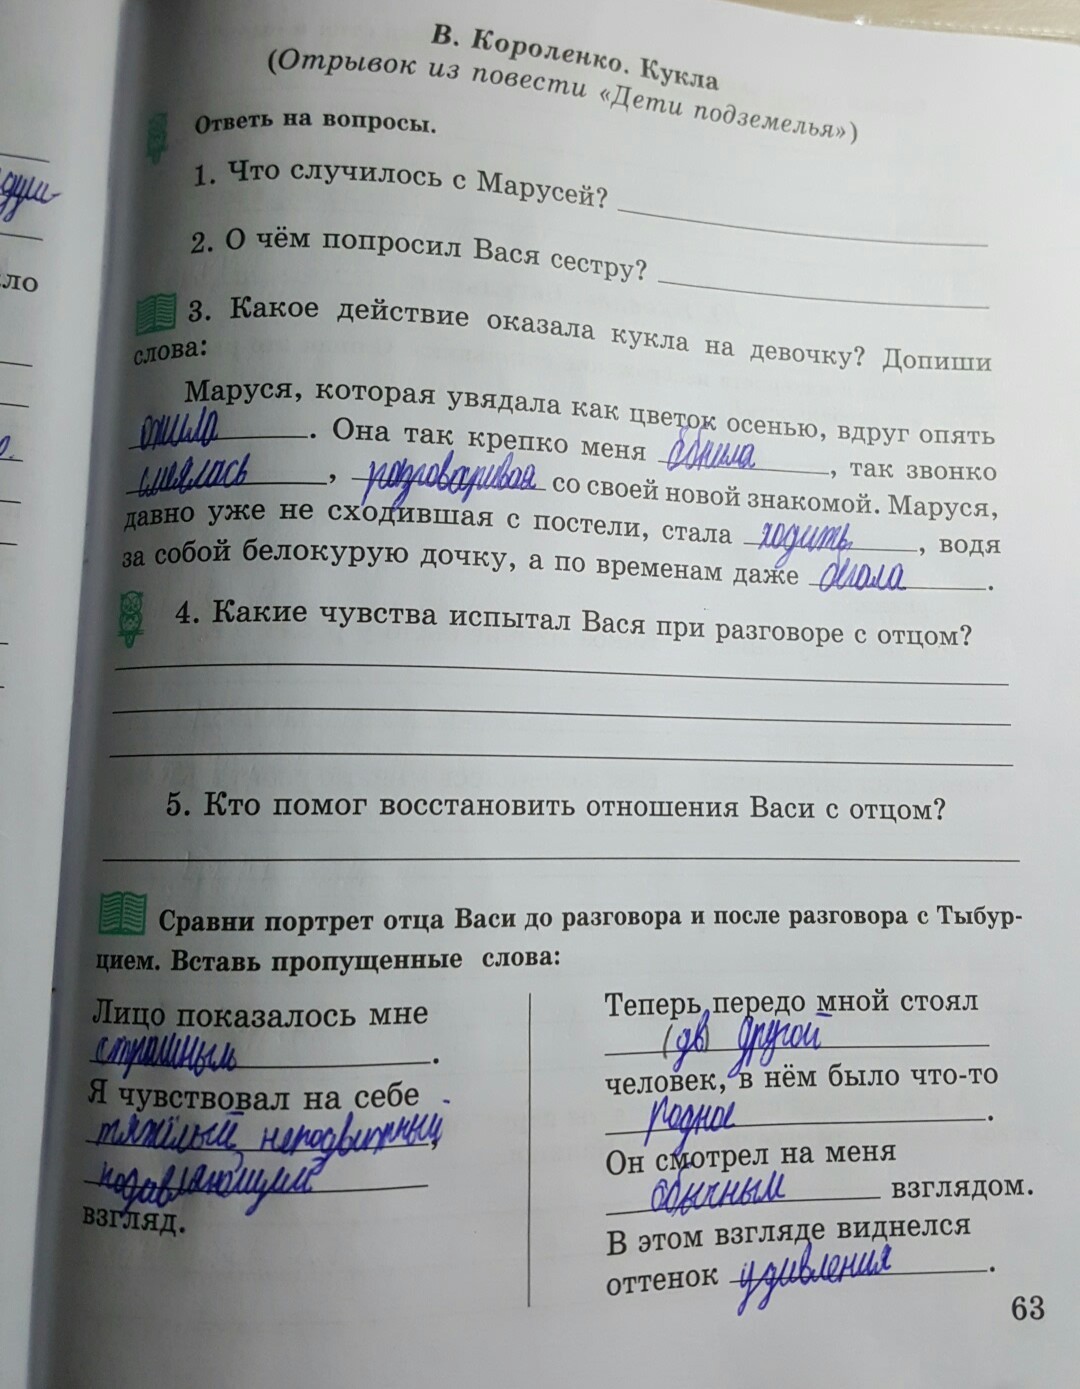 В. Короленко. Кукла
(Отрывок из повести «Дети подземелья»)
Ответь на вопросы.
1. Что случилось с Марусей?
2. О чём попросил Вася сестру?
3. Какое действие оказала кукла на девочку? Допиши
слова:
Маруся, которая увядала как цветок осенью, вдруг опять
ожила. Она так крепко меня обнила, так звонко
смеялась, разговаривая со своей новой знакомой. Маруся,
давно уже не сходившая с постели, стала ходить, водя
за собой белокурую дочку, а по временам даже бегала.
4. Какие чувства испытал Вася при разговоре с отцом?
5. Кто помог восстановить отношения Васи с отцом?
Сравни портрет отца Васи до разговора и после разговора с Тыбур-
цием. Вставь пропущенные слова:
Лицо показалось мне
страшным.
Я чувствовал на себе
тяжёлый, неподвижный,
подавляющий
взгляд.
Теперь передо мной стоял
(дв) другой
человек, в нём было что-то
родное.
Он смотрел на меня
обычным взглядом.
В этом взгляде виднелся
оттенок удивления.
63
душ-
ло